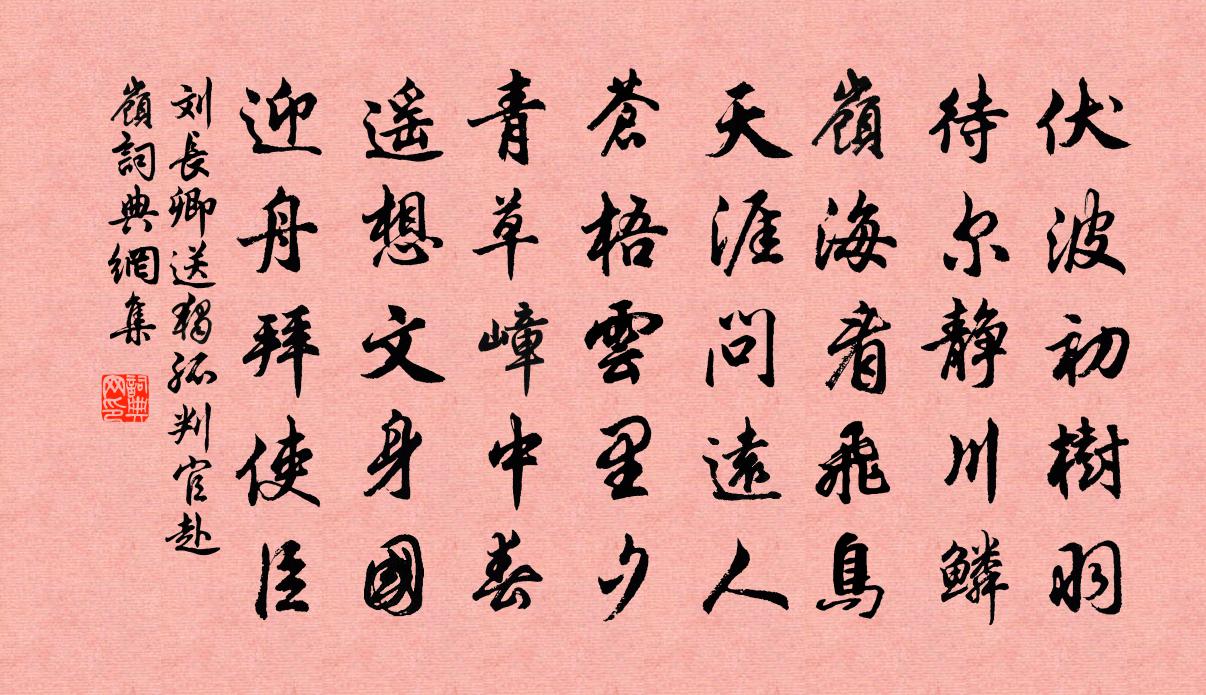 伏波初樹羽
待尔静川鱗
嶺海看飛鳥
天涯問遠人
蒼梧雲里夕
青草嶂中春
遥想文身國
迎舟拜使臣
刘長卿送獨孤判官赴
嶺詞典網集
詞典網印